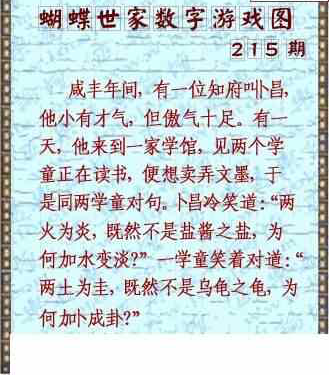 蝴蝶世家数字游戏图
215期
咸丰年间，有一位知府叫卜昌，
他小有才气，但傲气十足。有一
天，他来到一家学馆，见两个学
童正在读书，便想卖弄文墨，于
是同两学童对句。卜昌冷笑道：“两
火为炎，既然不是盐酱之盐，为
何加水变淡？”一学童笑着对道：“
两土为圭，既然不是乌龟之龟，为
何加卜成卦？”